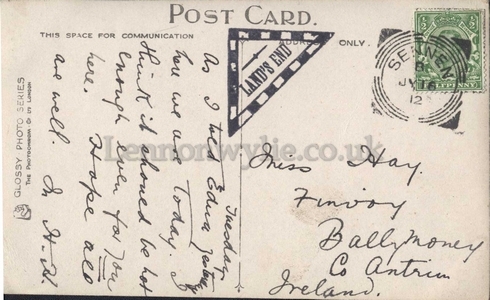 POST CARD.
THIS SPACE FOR COMMUNICATION
ADDRESS ONLY.
LAND'S END
SENNEN
JY 16
12
HALFPENNY
Tuesday
As I told Edna
here we are today. I
think it should be hot
enough even for you
here. Hope all
are well. In
Miss Hay.
Finvoy
Ballymoney
Co Antrim
Ireland.
GLOSSY PHOTO SERIES
THE PHOTOCHROM CO LTD LONDON
Lennonwylie.co.uk